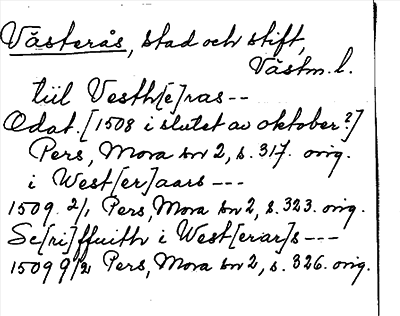 Västerås, stad och stift,
Västm. l.
tiil Vesth[e]ras --
Odat. [1508 i slutet av oktober?]
Pers, Mora br 2, s. 317. orig.
i West[er]aars ---
1509 2/1 Pers, Mora br 2, s. 323. orig.
Sc[ri]ffuith i West[erar]s ---
1509 9/2 Pers, Mora br 2, s. 326. orig.